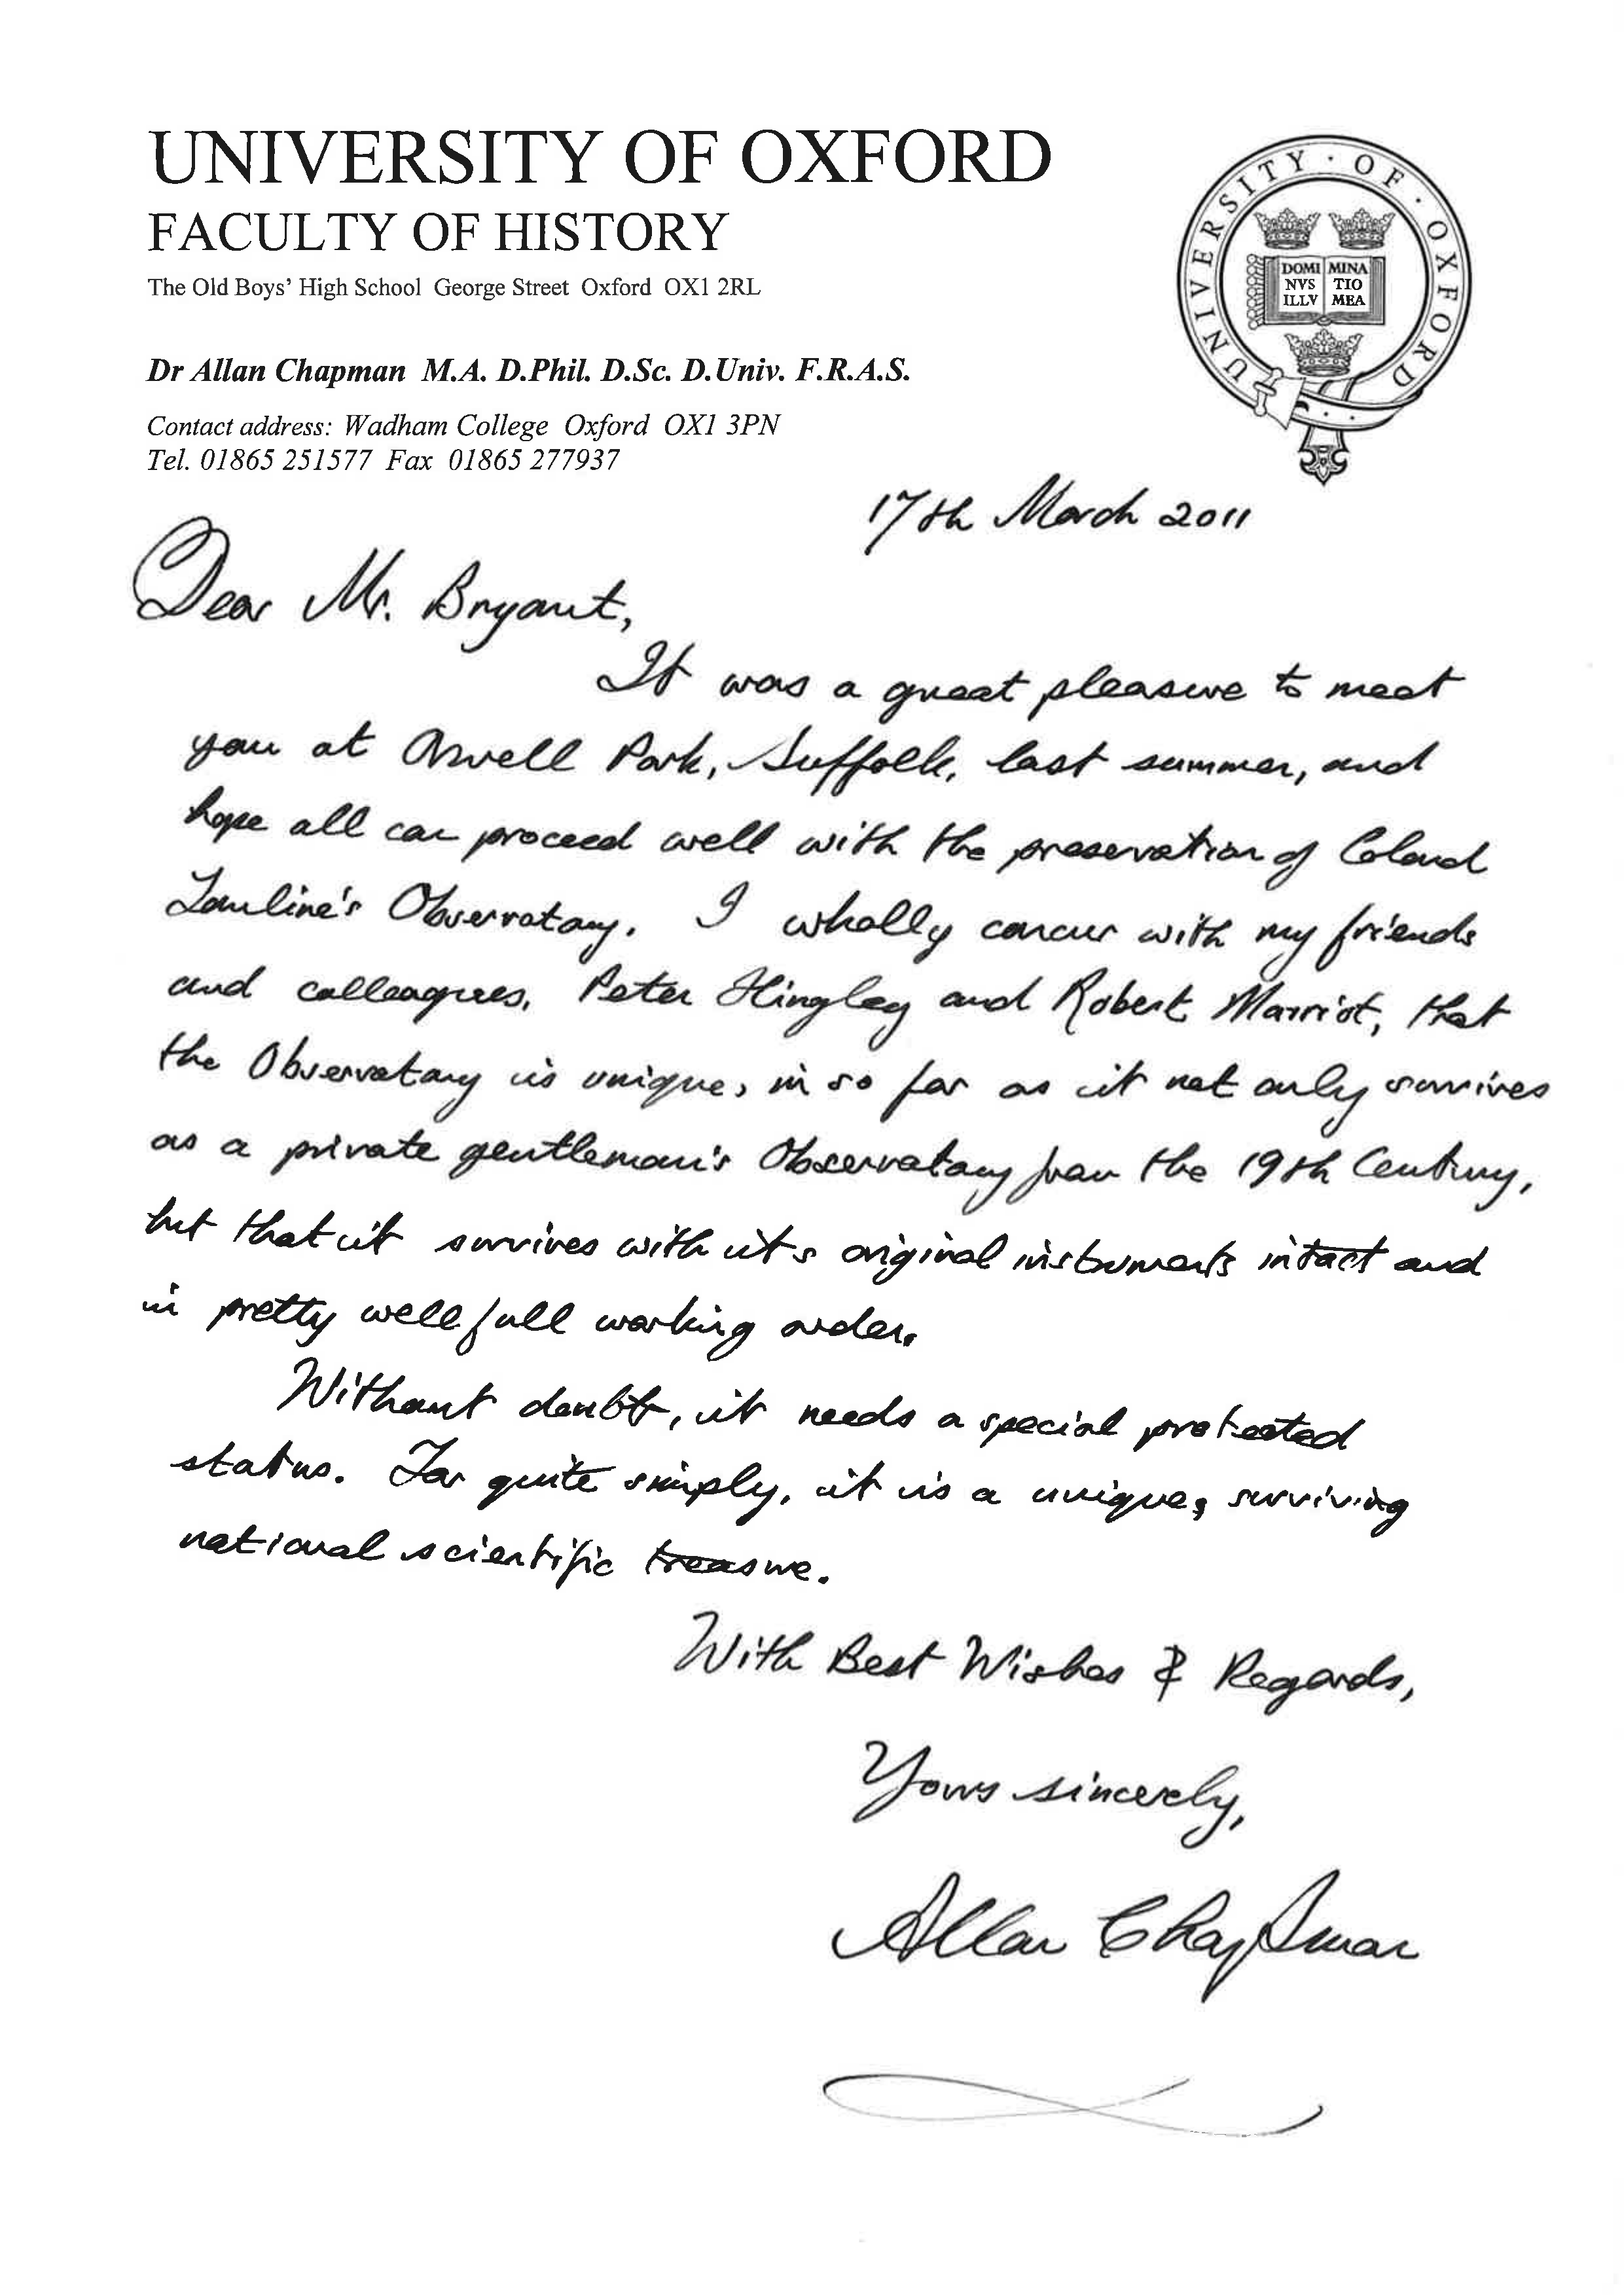 UNIVERSITY OF OXFORD
FACULTY OF HISTORY
The Old Boys' High School George Street Oxford OX1 2RL
Dr Allan Chapman M.A. D.Phil. D.Sc. D.Univ. F.R.A.S.
Contact address: Wadham College Oxford OX1 3PN
Tel. 01865 251577 Fax 01865 277937
UNIVERSITY · OF · OXFORD
DOMI MINA
NVS TIO
ILLV MEA
17th March 2011
Dear Mr. Bryant,
It was a great pleasure to meet
you at Orwell Park, Suffolk, last summer, and
hope all can proceed well with the preservation of Colonel
Tomline's Observatory. I wholly concur with my friends
and colleagues, Peter Hingley and Robert Marriot, that
the Observatory is unique, in so far as it not only survives
as a private gentleman's Observatory from the 19th Century,
but that it survives with it's original instruments intact and
in pretty well full working order.
Without doubt, it needs a special protected
status. For quite simply, it is a unique, surviving
national scientific treasure.
With Best Wishes & Regards,
Yours sincerely,
Allan Chapman